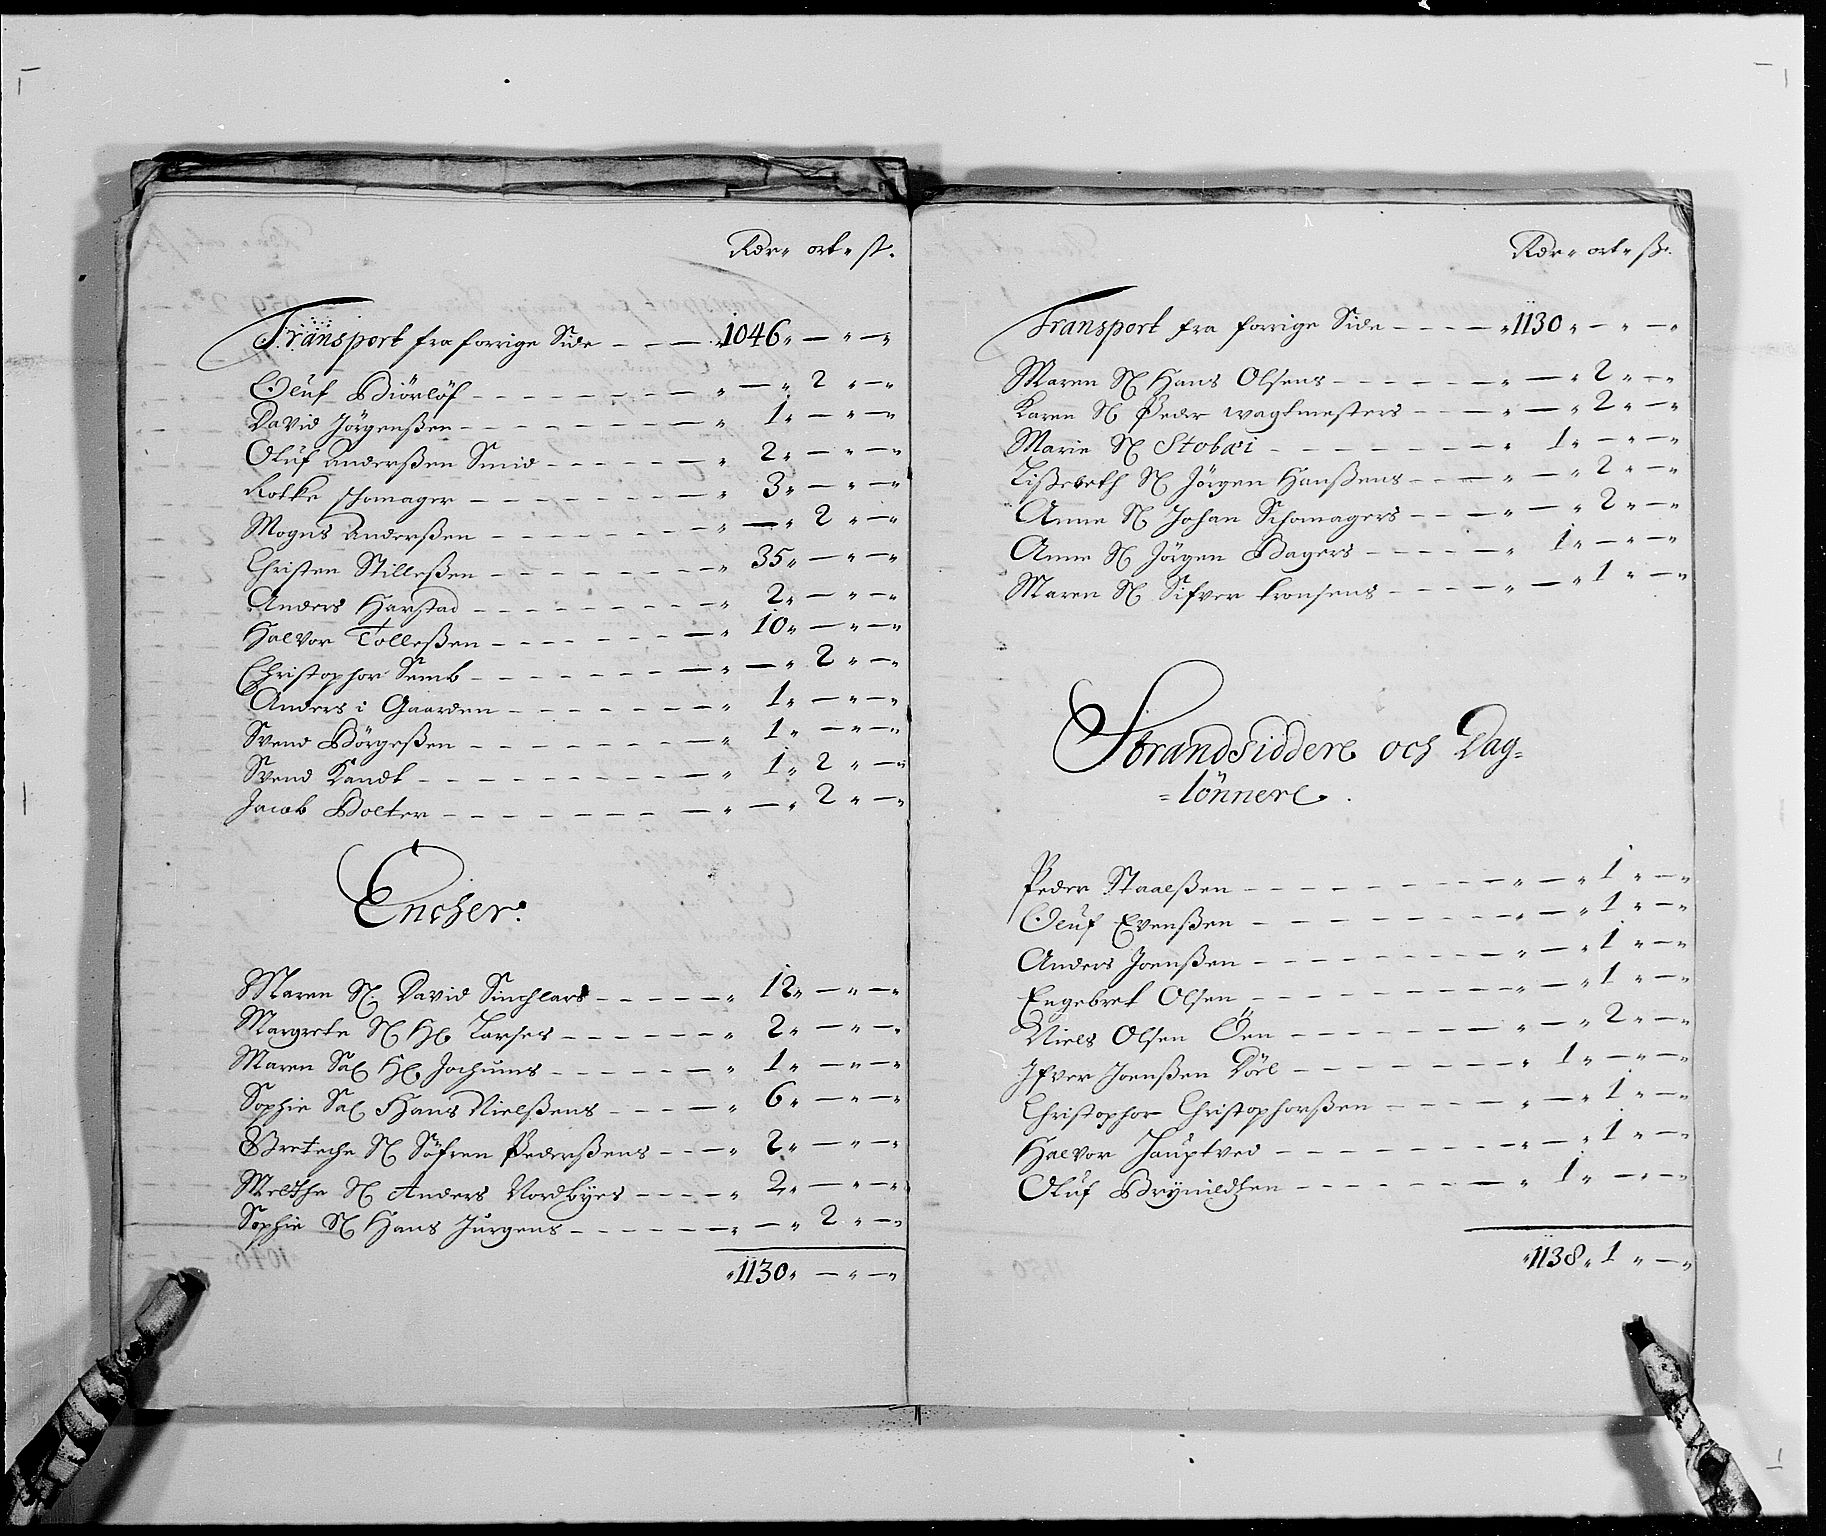 Rdr " ort " ß.
Transport fra forrige Side — — — " 1046 " — " — "
Oluf Biörlöf — — — " — " 2 " — "
David Jörgenßen — — — " 1 " — " — "
Oluf Anderßen Smid — — — " 2 " — " — "
Rotke schomager — — — " 3 " — " — "
Mogns Anderßen — — — " — " 2 " — "
Christen Stilleßen — — — " 35 " — " — "
Anders Harstad — — — " 2 " — " — "
Halvor Tolleßen — — — " 10 " — " — "
Christopher Semb — — — " — " 2 " — "
Anders i Gaarden — — — " 1 " — " — "
Svend Börgeßen — — — " 1 " — " — "
Svend Kandt — — — " 1 " 2 " — "
Jacob Bolter — — — " — " 2 " — "
Encher.
Maren Sl David Sinchlars — — — " 12 " — " — "
Margrete Sl Hr Larses — — — " 2 " — " — "
Maren Sal Hr Jochums — — — " 1 " — " — "
Sophie Sal Hans Nielßens — — — " 6 " — " — "
Greteche Sl Söfren Pederßens — — — " 2 " — " — "
Melthe Sl Anders Nordbyes — — — " 2 " — " — "
Sophie Sl Hans Jurgens — — — " — " 2 " — "
" 1130 " — " — "
Rdr " ort " ß.
Transport fra forrige Side — — — " 1130 " — " — "
Maren Sl Hans Olsens — — — " — " 2 " — "
Karen Sl Peder wagtmesters — — — " — " 2 " — "
Marie Sl Stobæi — — — " 1 " — " — "
Lißebeth Sl Jörgen Hanßens — — — " — " 2 " — "
Anne Sl Johan Schomagers — — — " — " 2 " — "
Anne Sl Jörgen Bagers — — — " 1 " — " — "
Maren Sl Sifver tronsens — — — " — " 1 " — "
Strandsiddere och Dag=
=lönnere.
Peder Staalßen — — — " — " 1 " — "
Oluf Evenßen — — — " — " 1 " — "
Anders Joenßen — — — " — " 1 " — "
Engebret Olsen — — — " — " 1 " — "
Niels Olsen Öen — — — " — " 2 " — "
Ifver Joenßen Döel — — — " 1 " — " — "
Christopher Christopherßen — — — " — " 1 " — "
Halvor Hauptved — — — " — " 1 " — "
Oluf Brynildsen — — — " 1 " — " — "
" 1138 " 1 " — "